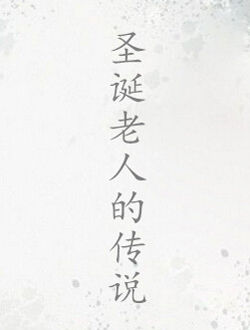 圣诞老人的传说